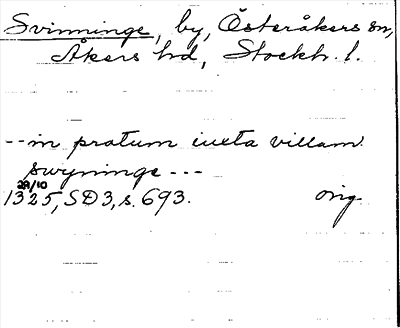 Svinninge, by, Österåkers sn,
Åkers hd, Stockh. l.
--in pratum iuxta villam
swyninge ---
29/10
1325, SD3, s. 693. orig.